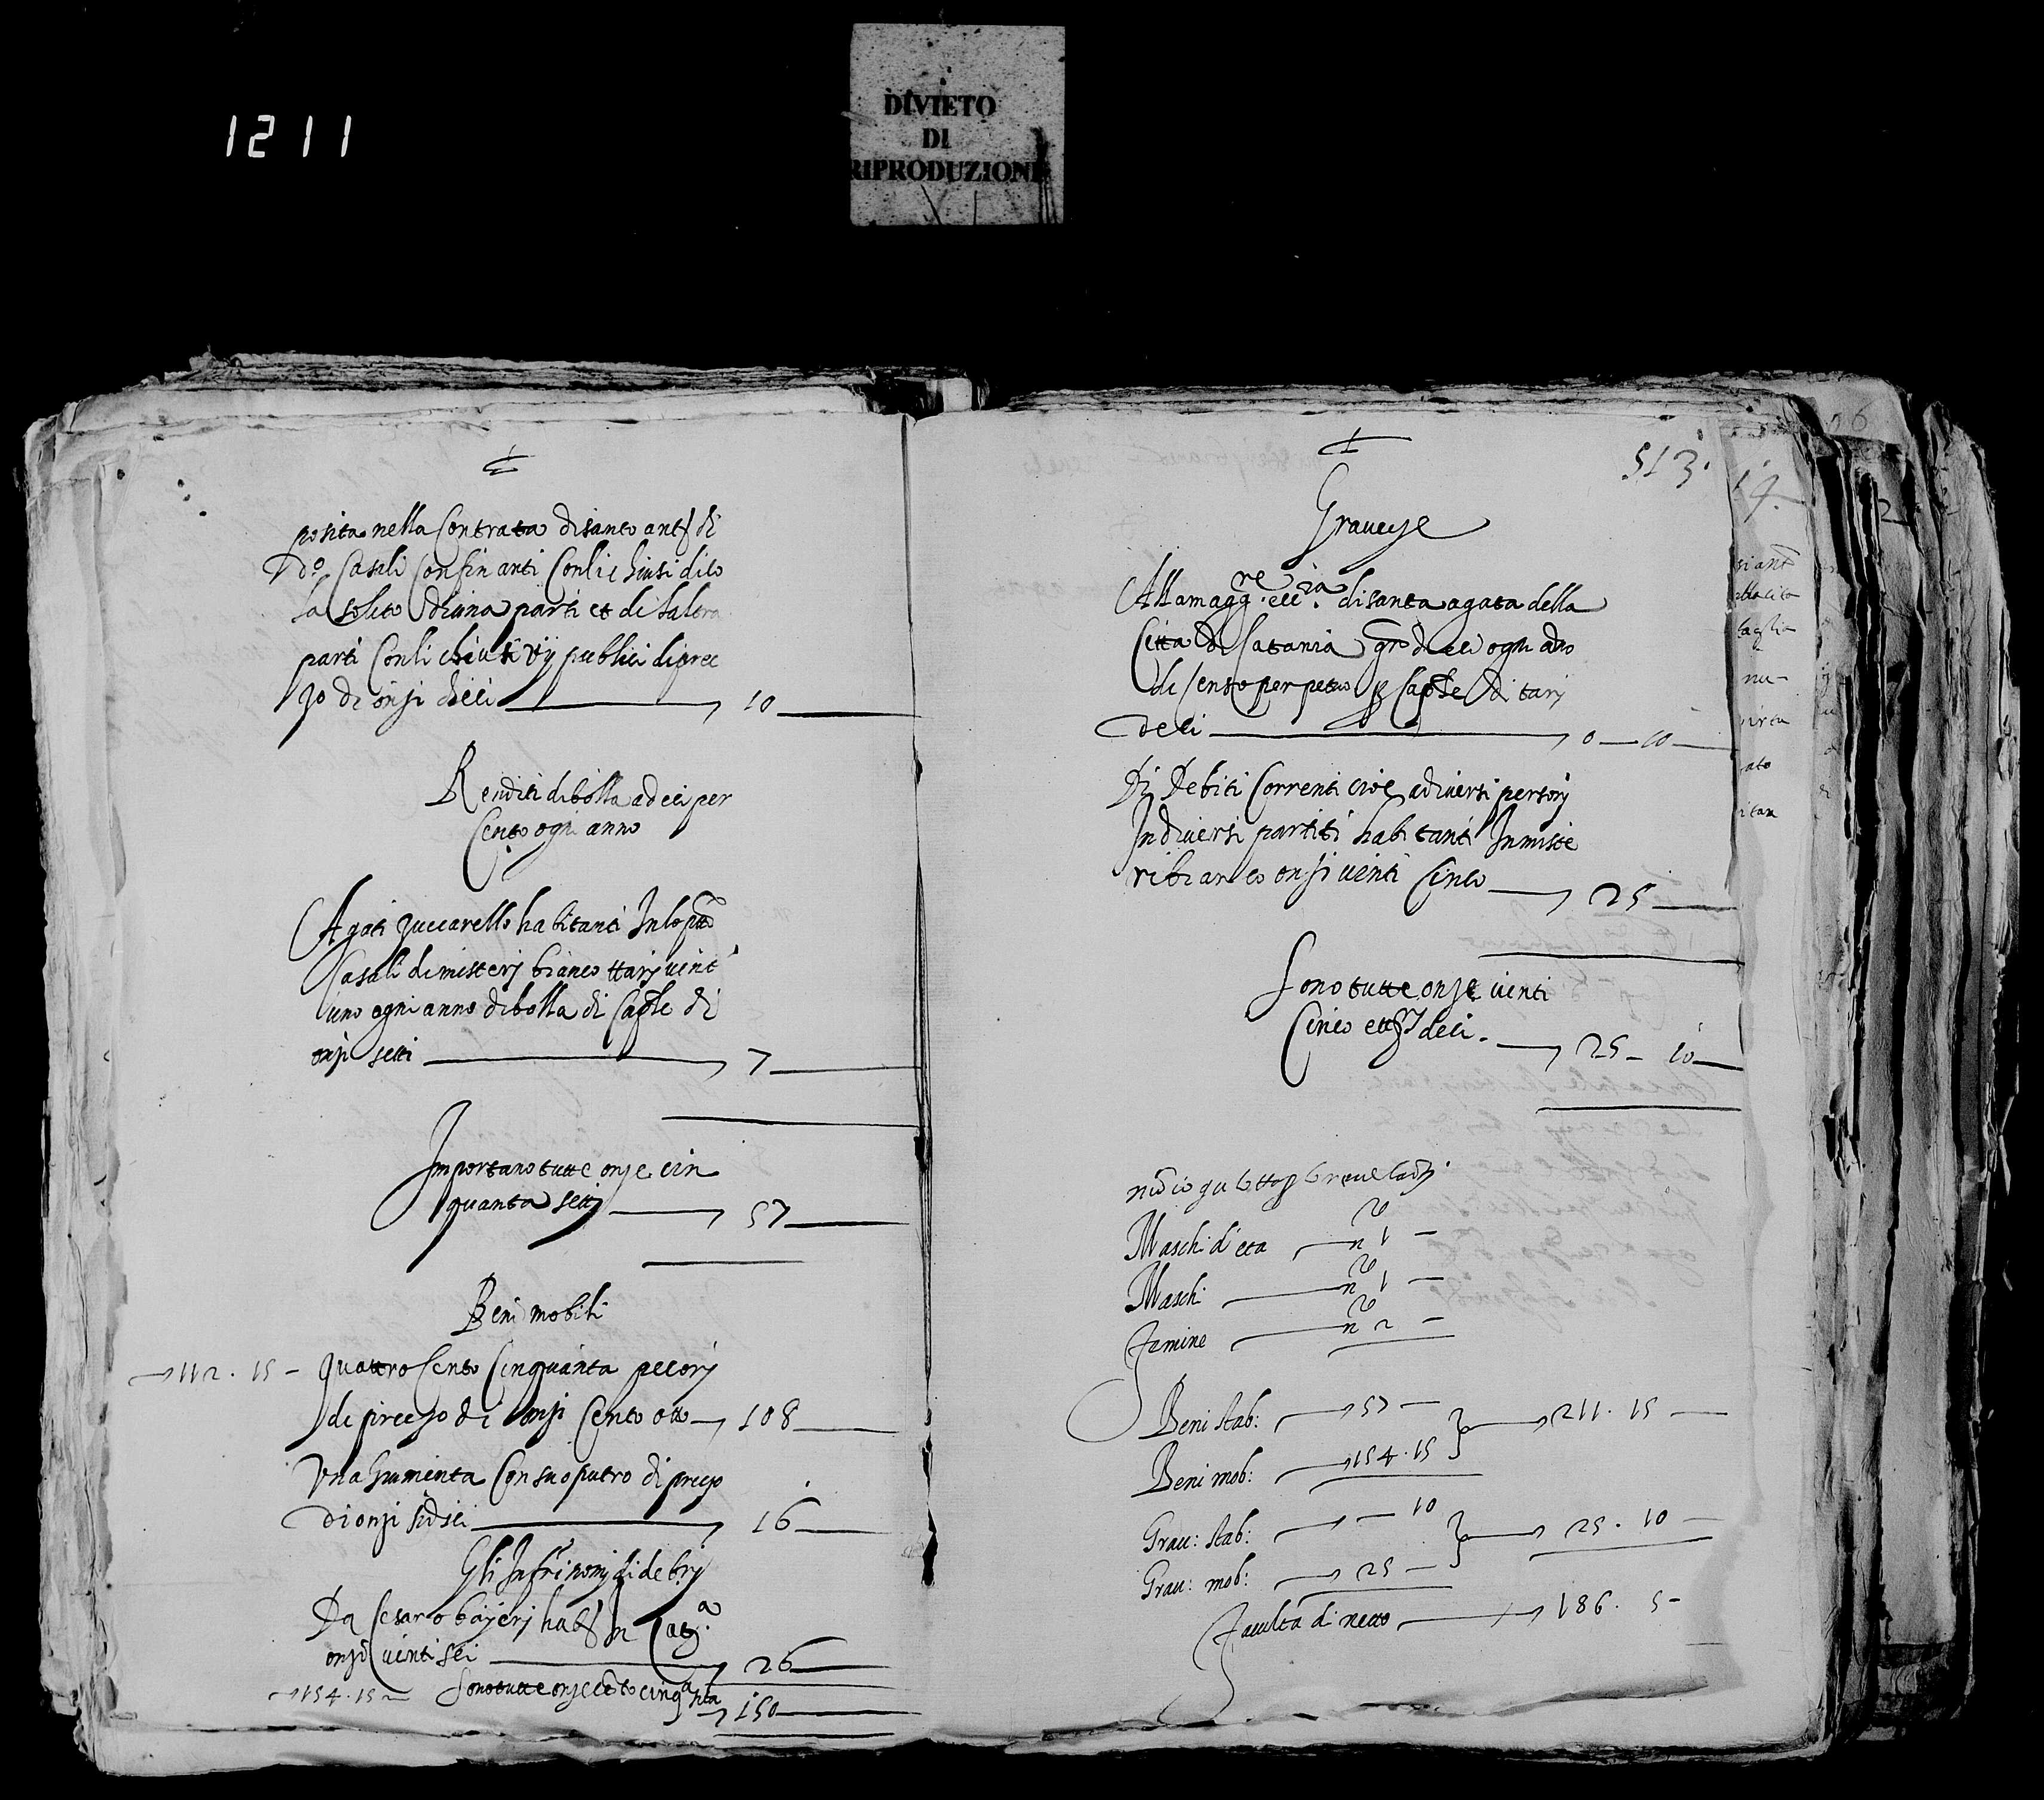 1211
DIVIETO
DI
RIPRODUZIONE
posita nella Contrata di santo ant.
Do. Casali Confinanti Conli chiusi di lo
la soleto di una parti et di laltra
parti Conli chiusi vij publici di prec
zo di onsi dieci 10
Renditi di bolla a deci per
Cento ogni anno
Agati zuccarello habitanti In lo ptto
Casali di misterj bianco ttarj vint
uno ogni anno di bolla di Caple di
onsi setti 7
Importano tutte onze cin
quanta setti 57
Beni mobili
112.15 quattro Cento Cinquanta pecorj
di prezzo di onsi Cento otto 108
Una Jumenta Con suo putro di prezo
di onsi sidici 16
Gli Infri nomj di debrj
Da Cesaro bajerj habt In Cata.
onsi vinti sei 26
154.15 Sono tutte onze Cento cinqta 150
513.
Gravezze
Alla maggre eccia di santa agata della
Citta di Catania deci ogni ano
di Censo perpetuo p Caple di tarj
deci 0 10
Di Debiti Correnti cioe a diversi personj
In diversi partiti habitanti In miste
ri bianco onsi vinti Cinco 25
Sono tutte onze vinti
Cinco ett deci. 25 10
Maschi d'eta no 1
Maschi no 1
Femine no 2
Beni stab: 57 211.15
Beni mob: 154.15
Grav: stab: 10
25.10
Grav: mob: 25
Facultà di netto 186.5